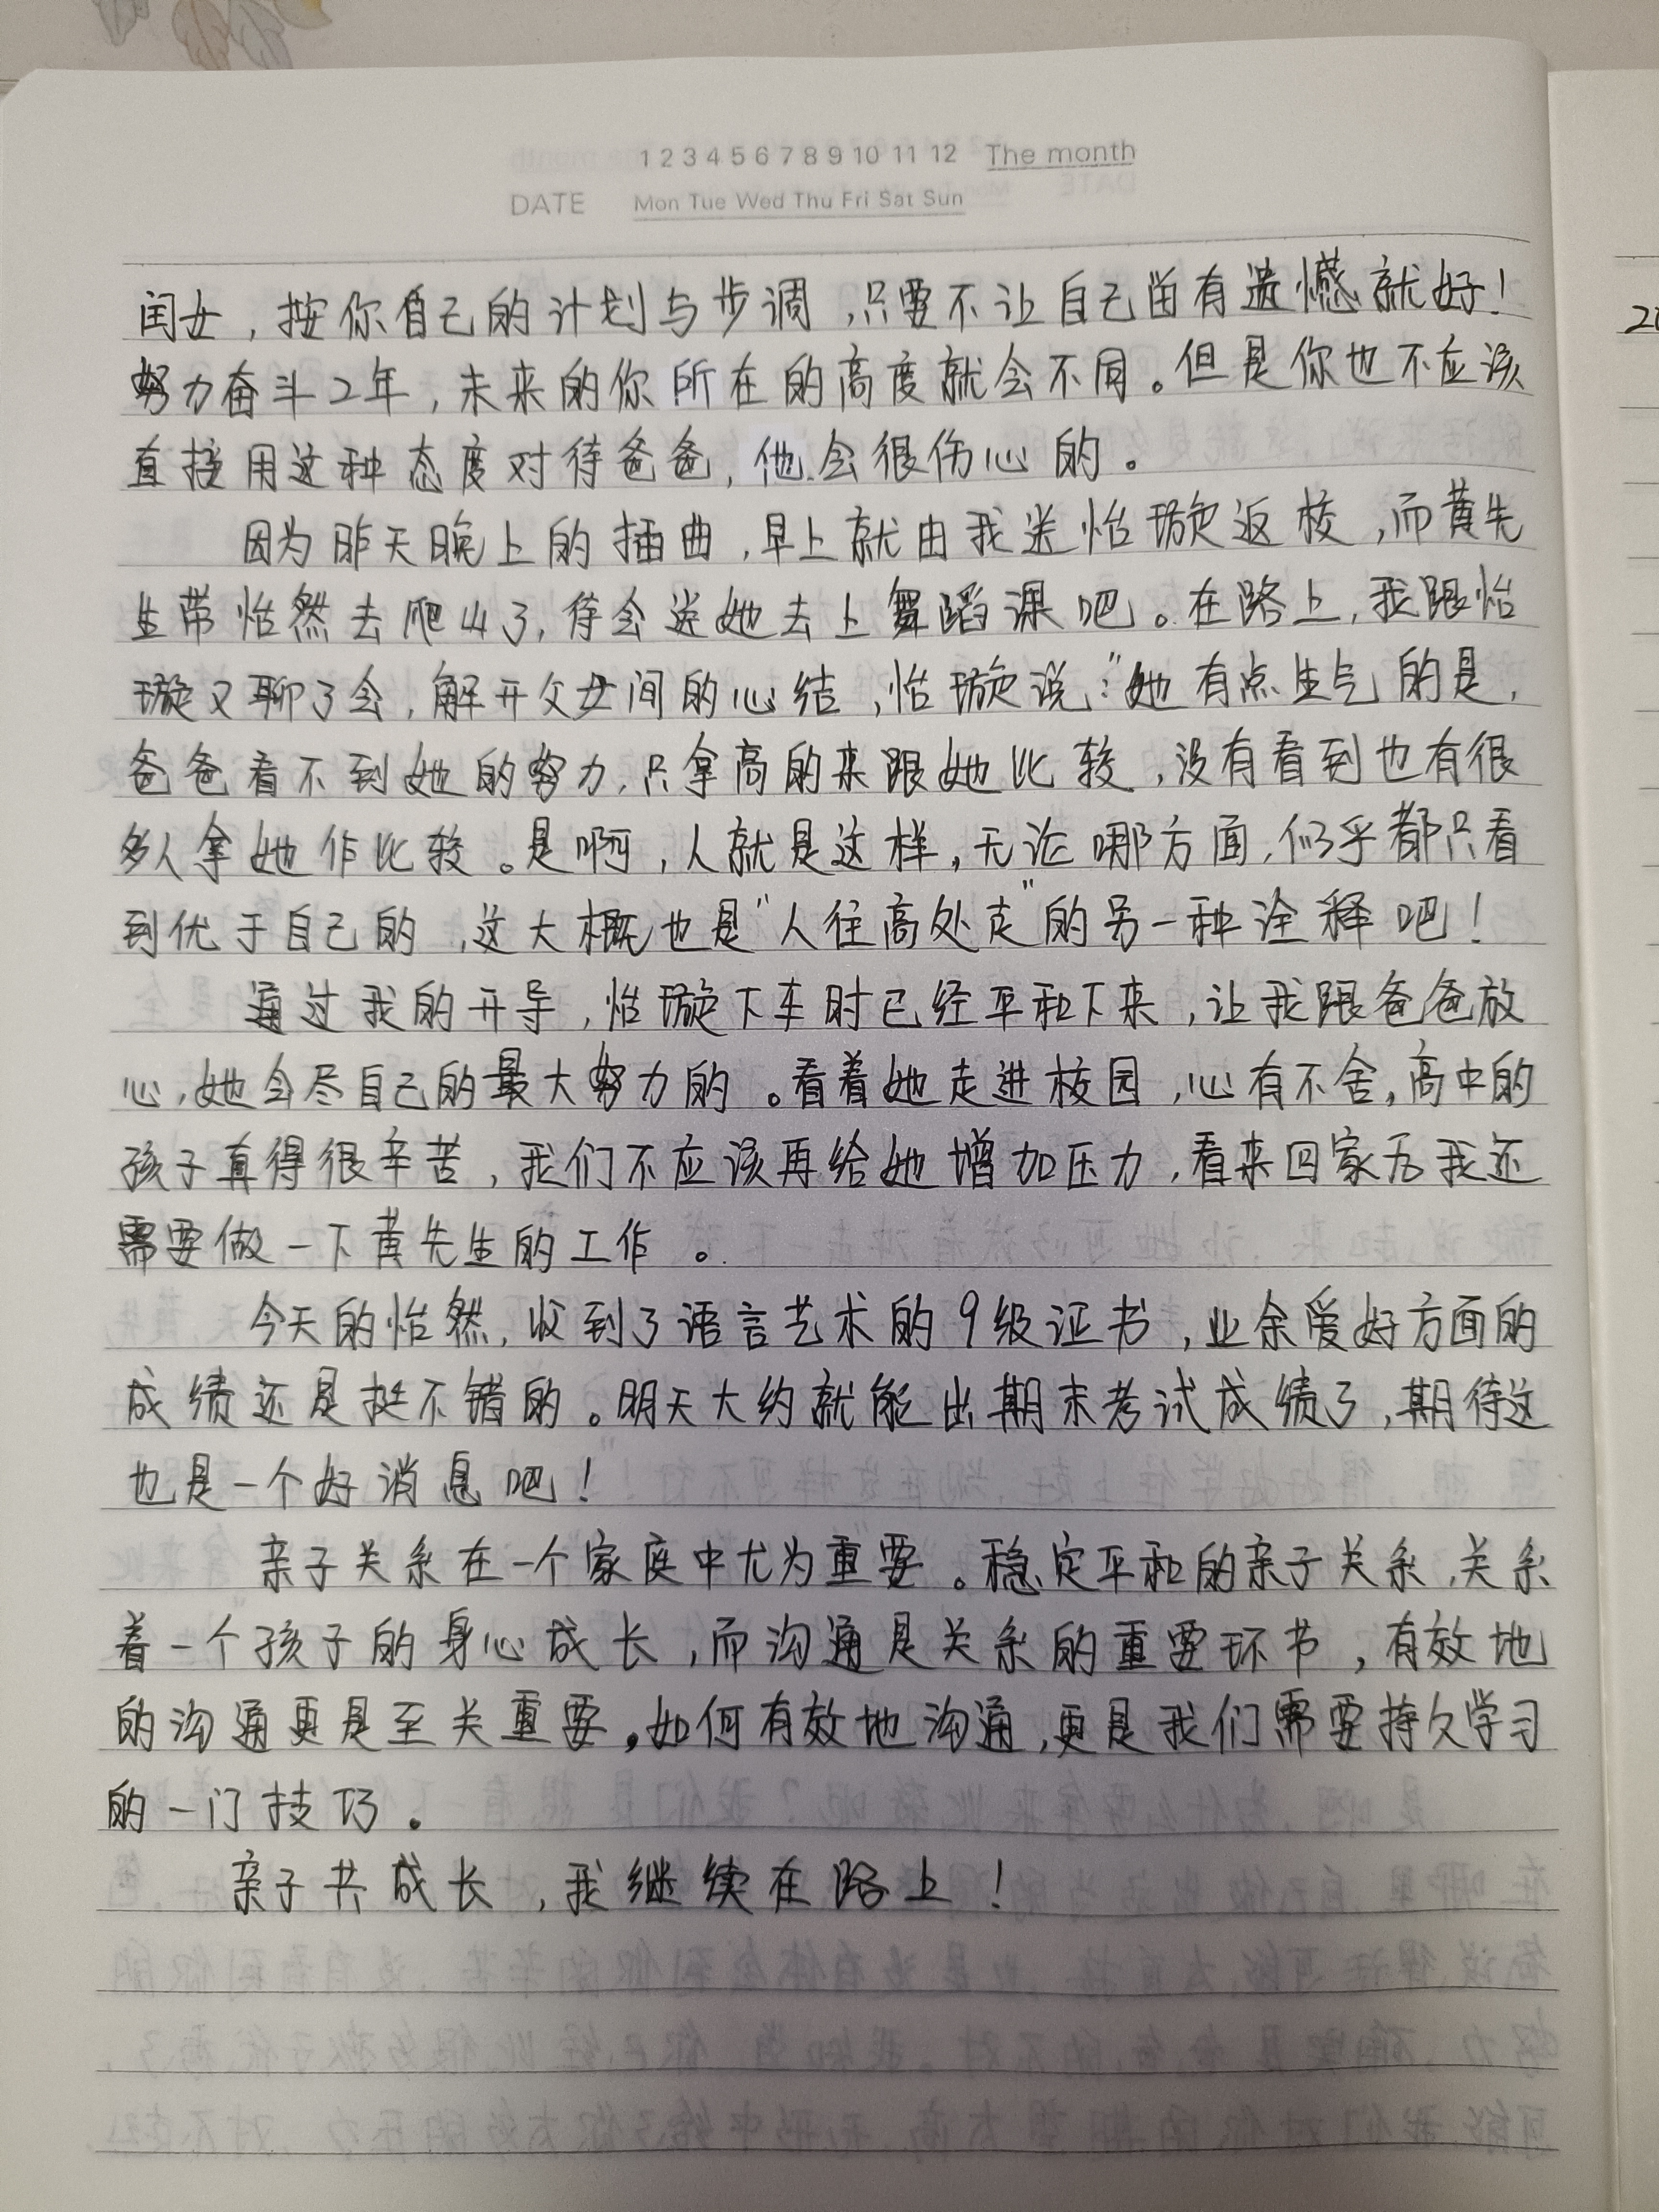 1 2 3 4 5 6 7 8 9 10 11 12 The month
DATE Mon Tue Wed Thu Fri Sat Sun
闰女，按你自己的计划与步调，只要不让自己留有遗憾就好！
努力奋斗2年，未来的你所在的高度就会不同。但是你也不应该
直接用这种态度对待爸爸，他会很伤心的。
因为昨天晚上的插曲，早上就由我送怡璇返校，而黄先
生带怡然去爬山了，待会送她去上舞蹈课吧。在路上，我跟怡
璇又聊了会，解开父女间的心结，怡璇说："她有点生气的是，
爸爸看不到她的努力，只拿高的来跟她比较，没有看到也有很
多人拿她作比较。是啊，人就是这样，无论哪方面，似乎都只看
到优于自己的，这大概也是"人往高处走"的另一种诠释吧！
通过我的开导，怡璇下车时已经平和下来，让我跟爸爸放
心，她会尽自己的最大努力的。看着她走进校园，心有不舍，高中的
孩子真得很辛苦，我们不应该再给她增加压力，看来回家后我还
需要做一下黄先生的工作。
今天的怡然，收到了语言艺术的9级证书，业余爱好方面的
成绩还是挺不错的。明天大约就能出期末考试成绩了，期待这
也是一个好消息吧！
亲子关系在一个家庭中尤为重要。稳定平和的亲子关系，关系
着一个孩子的身心成长，而沟通是关系的重要环节，有效地
的沟通更是至关重要，如何有效地沟通，更是我们需要持久学习
的一门技巧。
亲子共成长，我继续在路上！